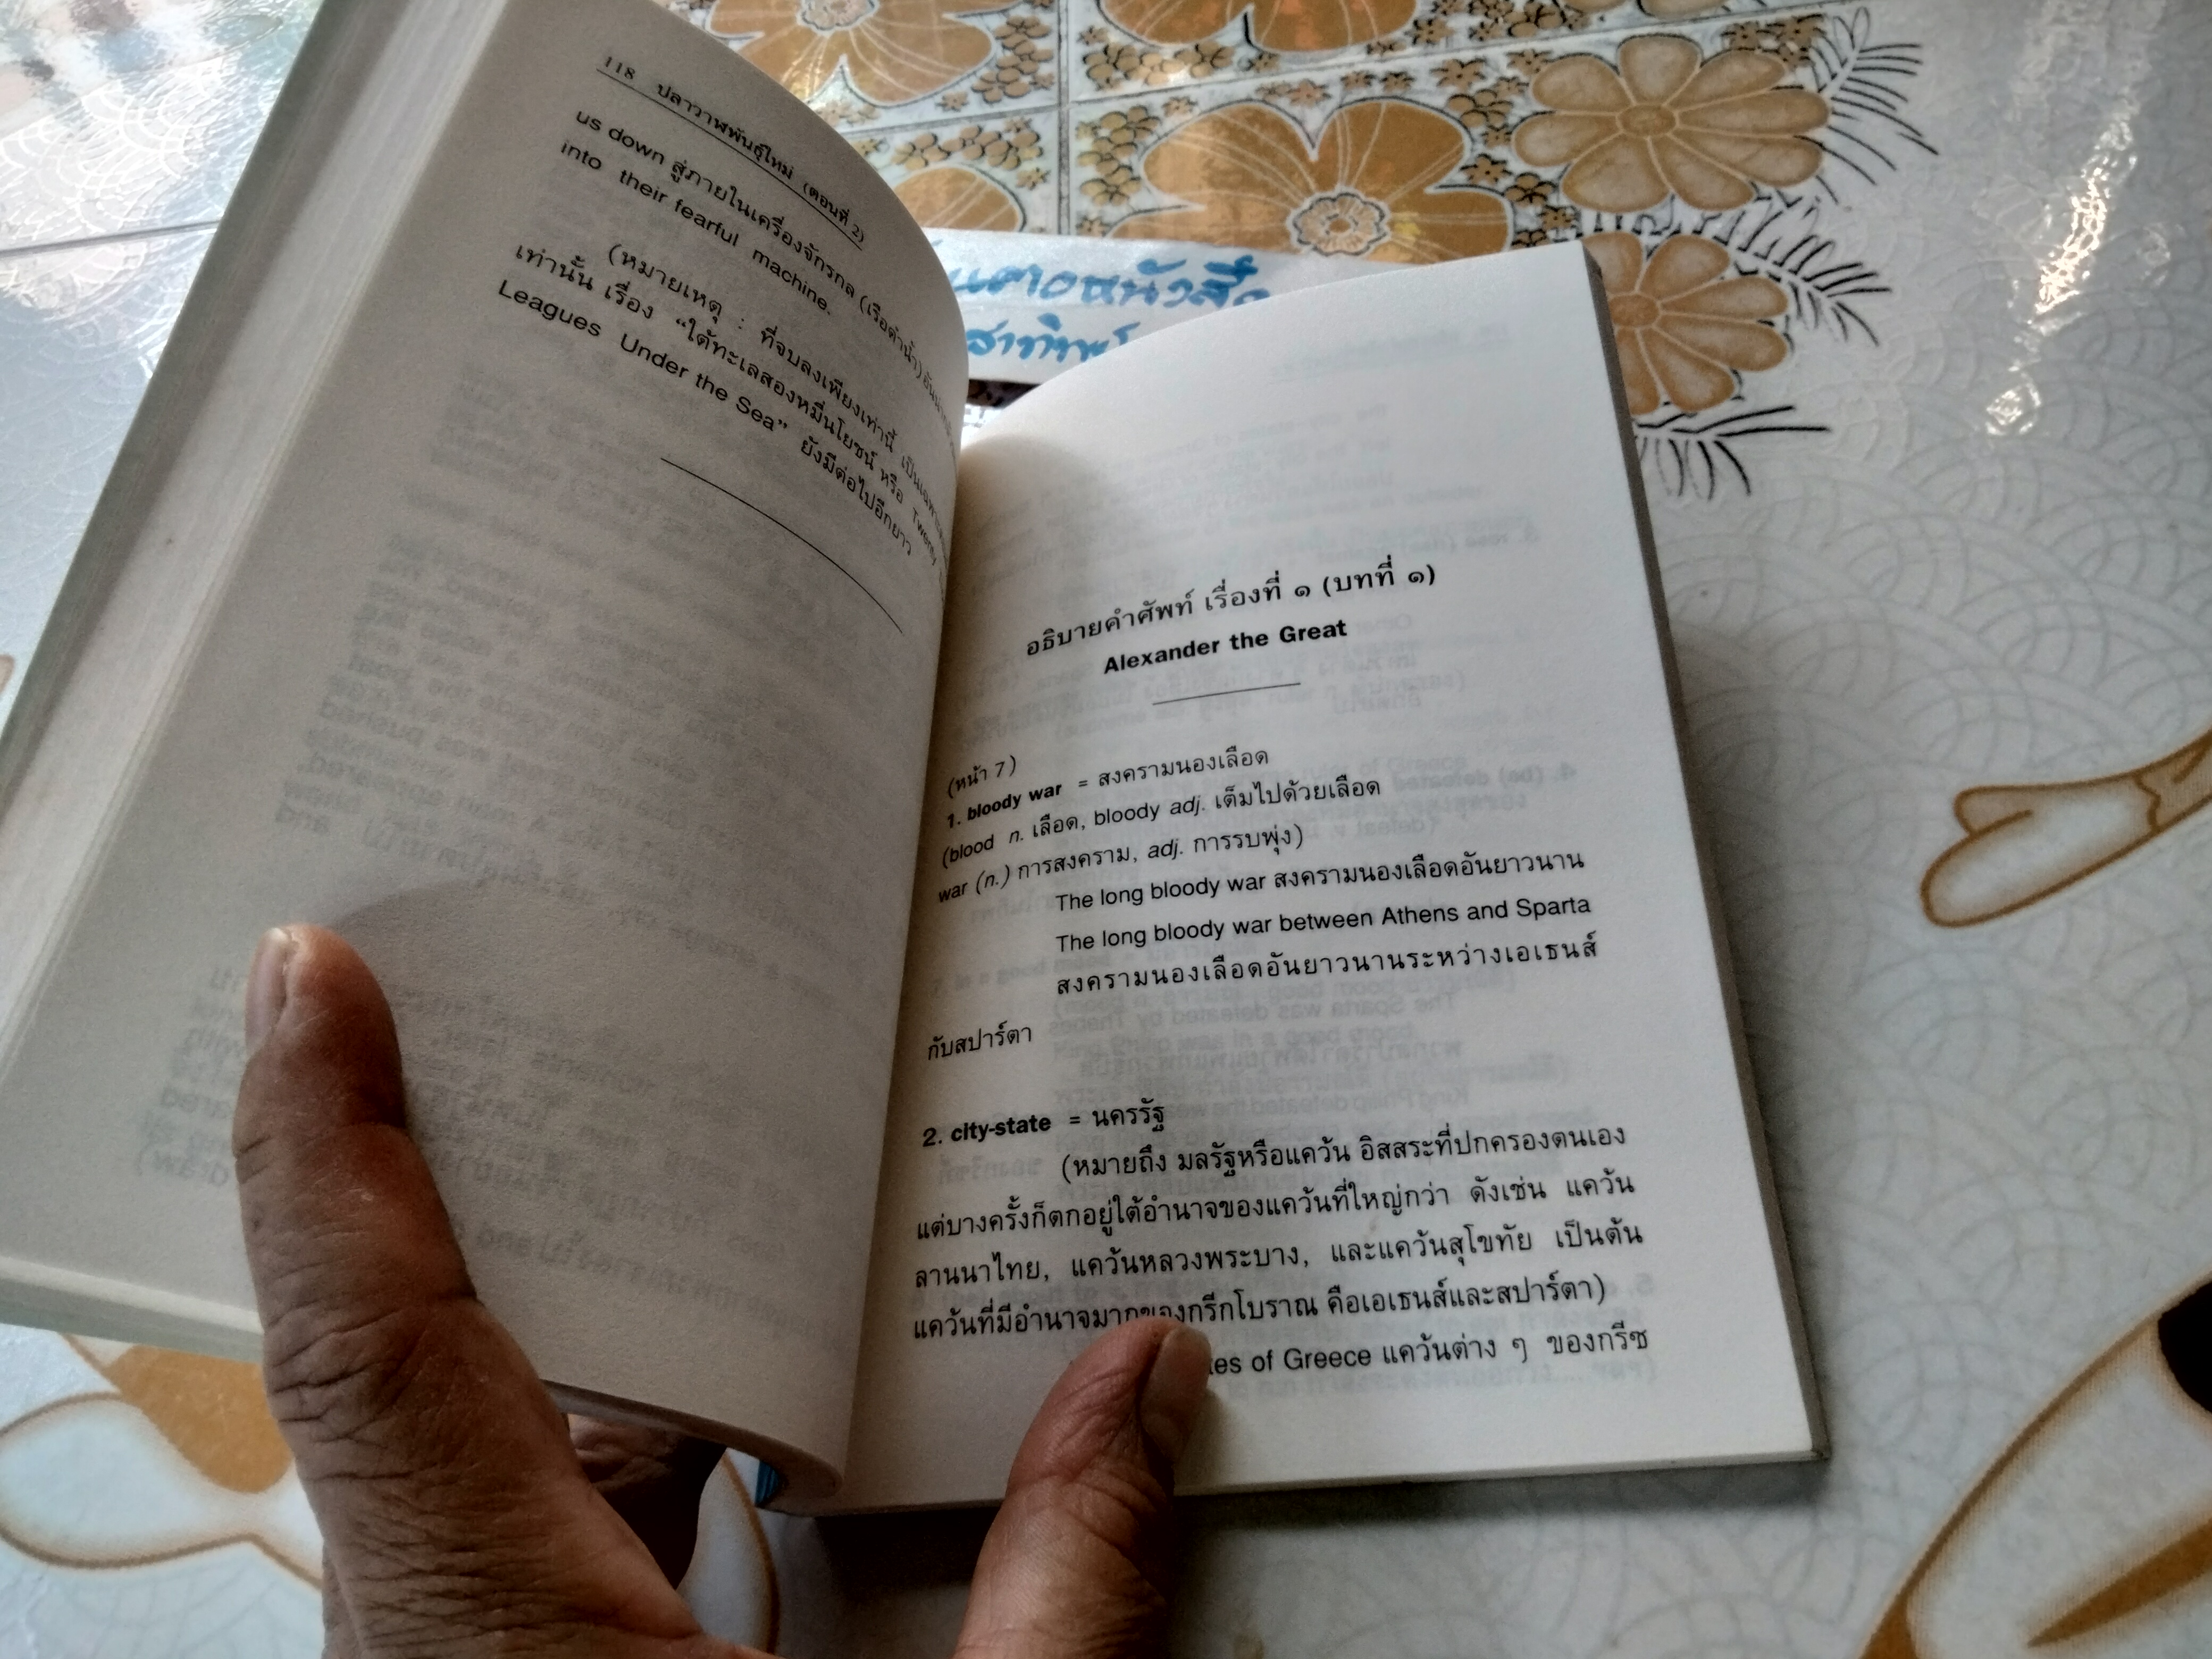 118 ปลาวาฬพันธุ์ใหม่ (ตอนที่ 2)
us down สู่ภายในเครื่องจักรกล (เรือดำน้ำ)
into their fearful machine.
(หมายเหตุ : ที่จบลงเพียงเท่านี้
เท่านั้น เรื่อง “ใต้ทะเลสองหมื่นโยชน์ หรือ Twenty
Leagues Under the Sea” ยังมีต่อไปอีกยาว
อธิบายคำศัพท์ เรื่องที่ ๑ (บทที่ ๑)
Alexander the Great
(หน้า 7)
1. bloody war = สงครามนองเลือด
(blood n. เลือด, bloody adj. เต็มไปด้วยเลือด
war (n.) การสงคราม, adj. การรบพุ่ง)
The long bloody war สงครามนองเลือดอันยาวนาน
The long bloody war between Athens and Sparta
สงครามนองเลือดอันยาวนานระหว่างเอเธนส์
กับสปาร์ตา
2. city-state = นครรัฐ
(หมายถึง มลรัฐหรือแคว้น อิสสระที่ปกครองตนเอง
แต่บางครั้งก็ตกอยู่ใต้อำนาจของแคว้นที่ใหญ่กว่า ดังเช่น แคว้น
ลานนาไทย, แคว้นหลวงพระบาง, และแคว้นสุโขทัย เป็นต้น
แคว้นที่มีอำนาจมากของกรีกโบราณ คือเอเธนส์และสปาร์ตา)
of Greece แคว้นต่าง ๆ ของกรีซ